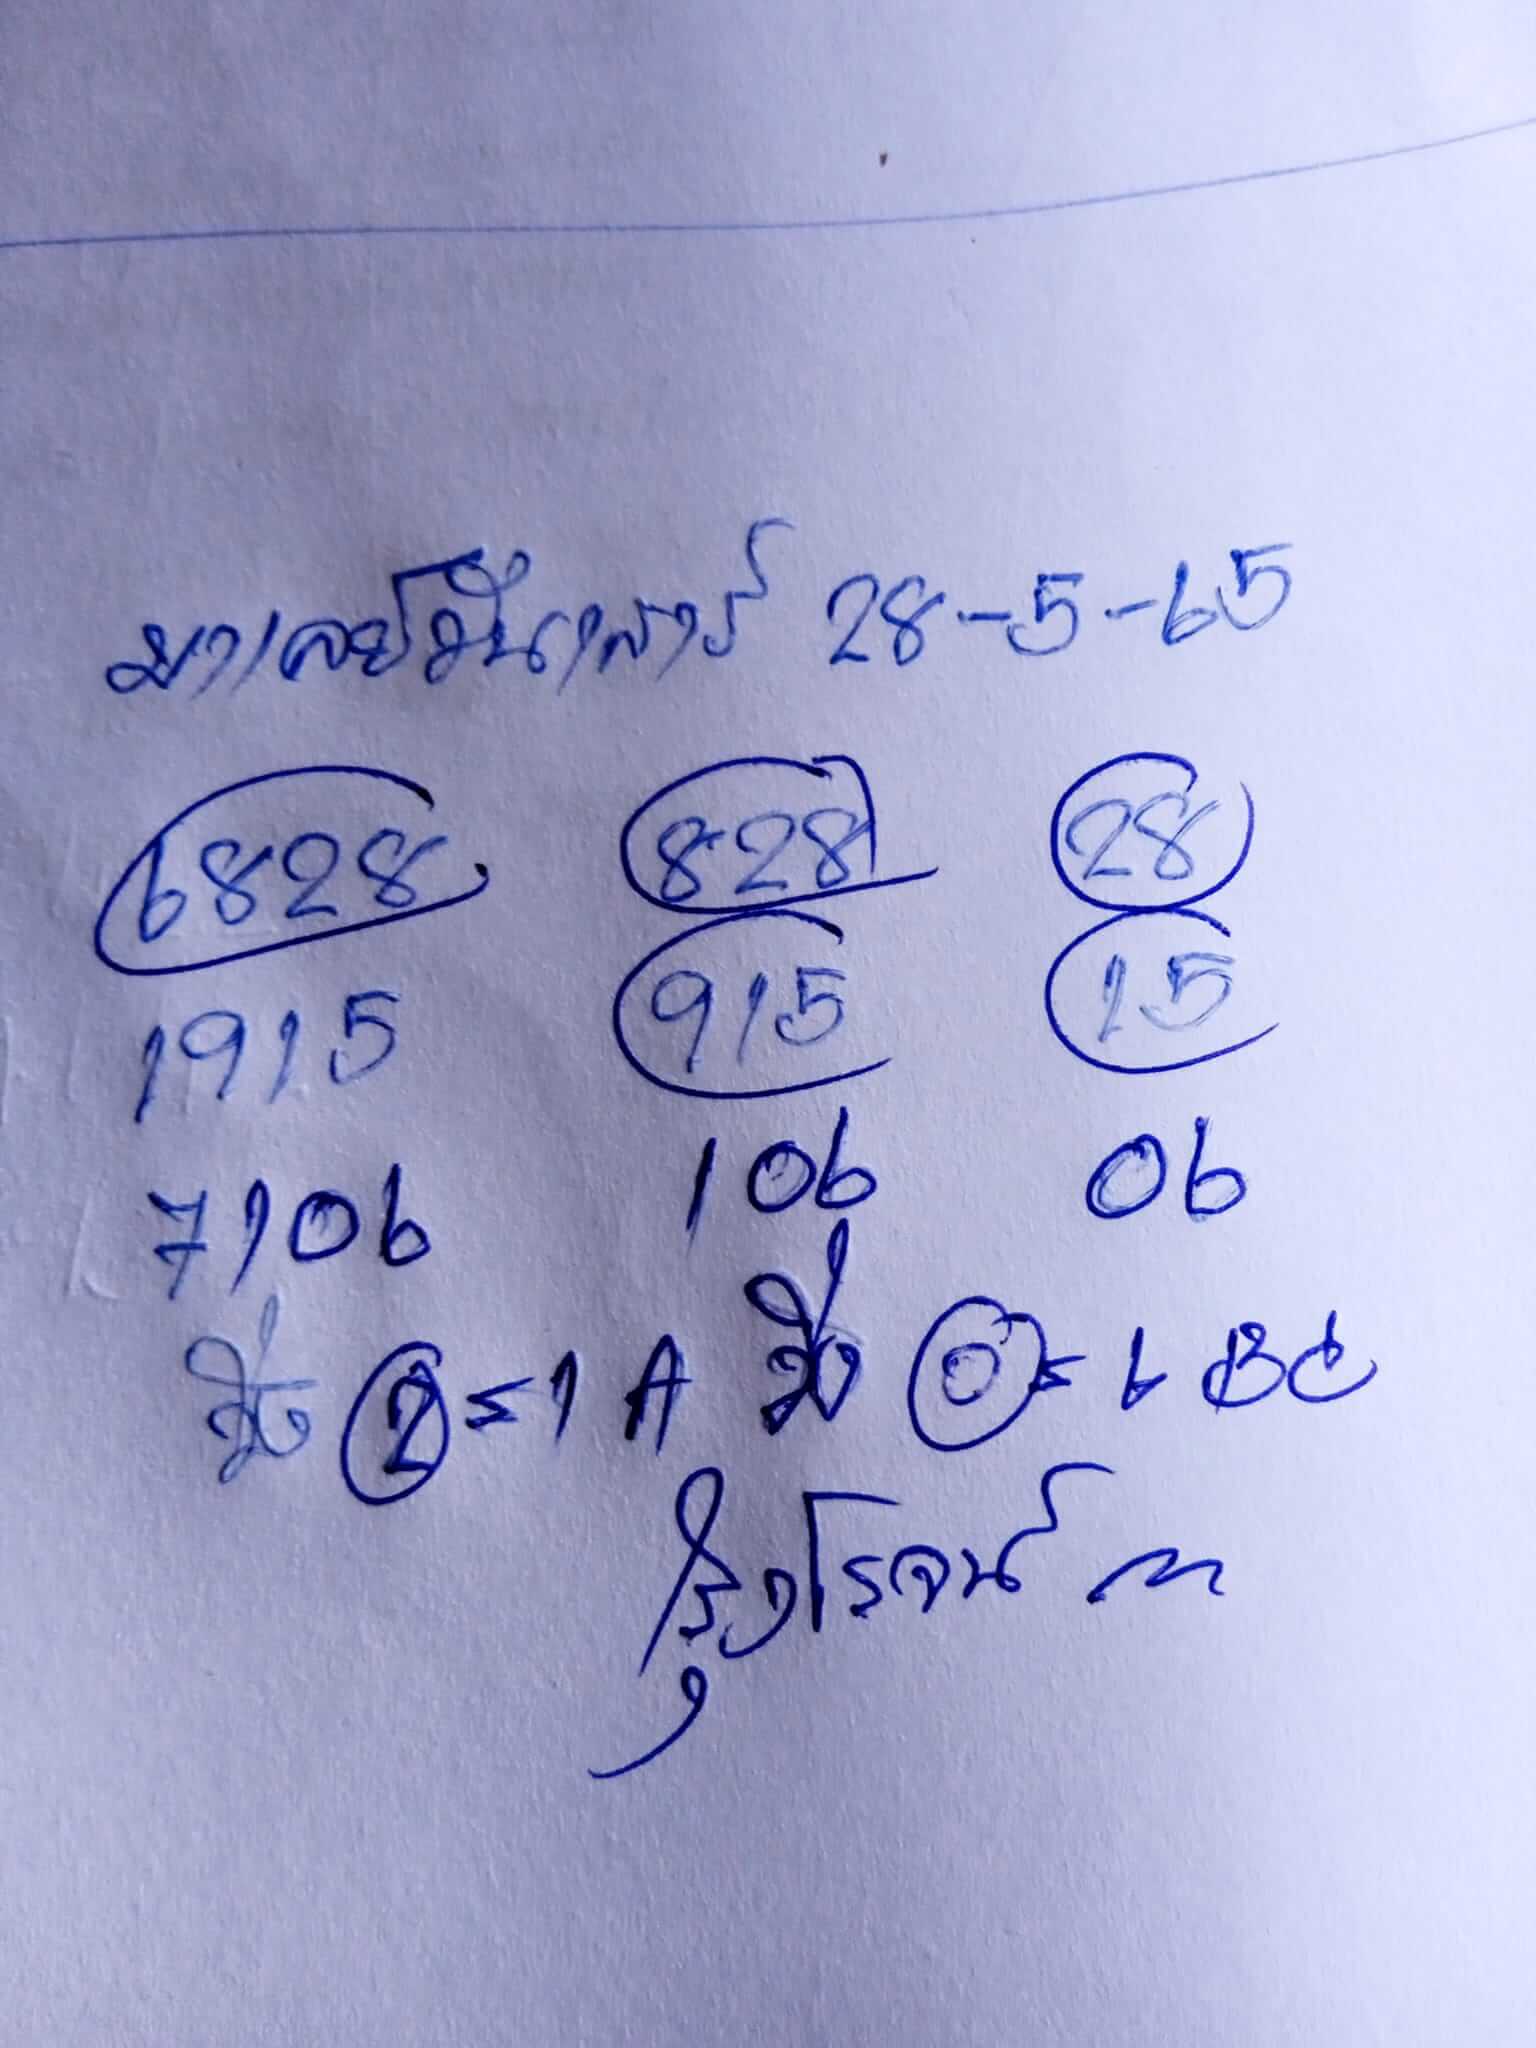 มาเลย์วันเสาร์ 28-5-65
6828 828 28
1915 915 15
7106 106 06
วิ่ง 2 = 1 A วิ่ง 0 = 6 BC
รุ่งโรจน์